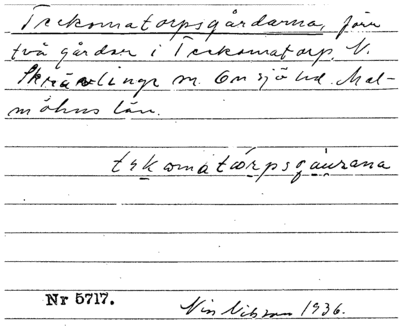 Teckomatorpsgårdarna, förr
två gårdar i Teckomatorp. N.
Skrävlinge sn. Onsjö hd. Mal-
möhus län.
tekomatorpsgåurana
Nr 5717.
Nils Nilsson 1936.